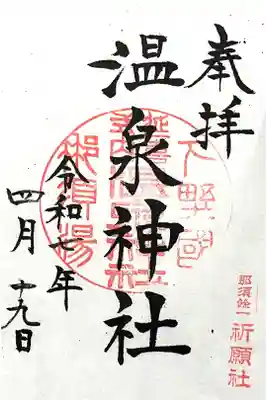 奉拝
温泉神社
令和七年
四月十九日
下野國
那須湯
那須餘一
祈願社